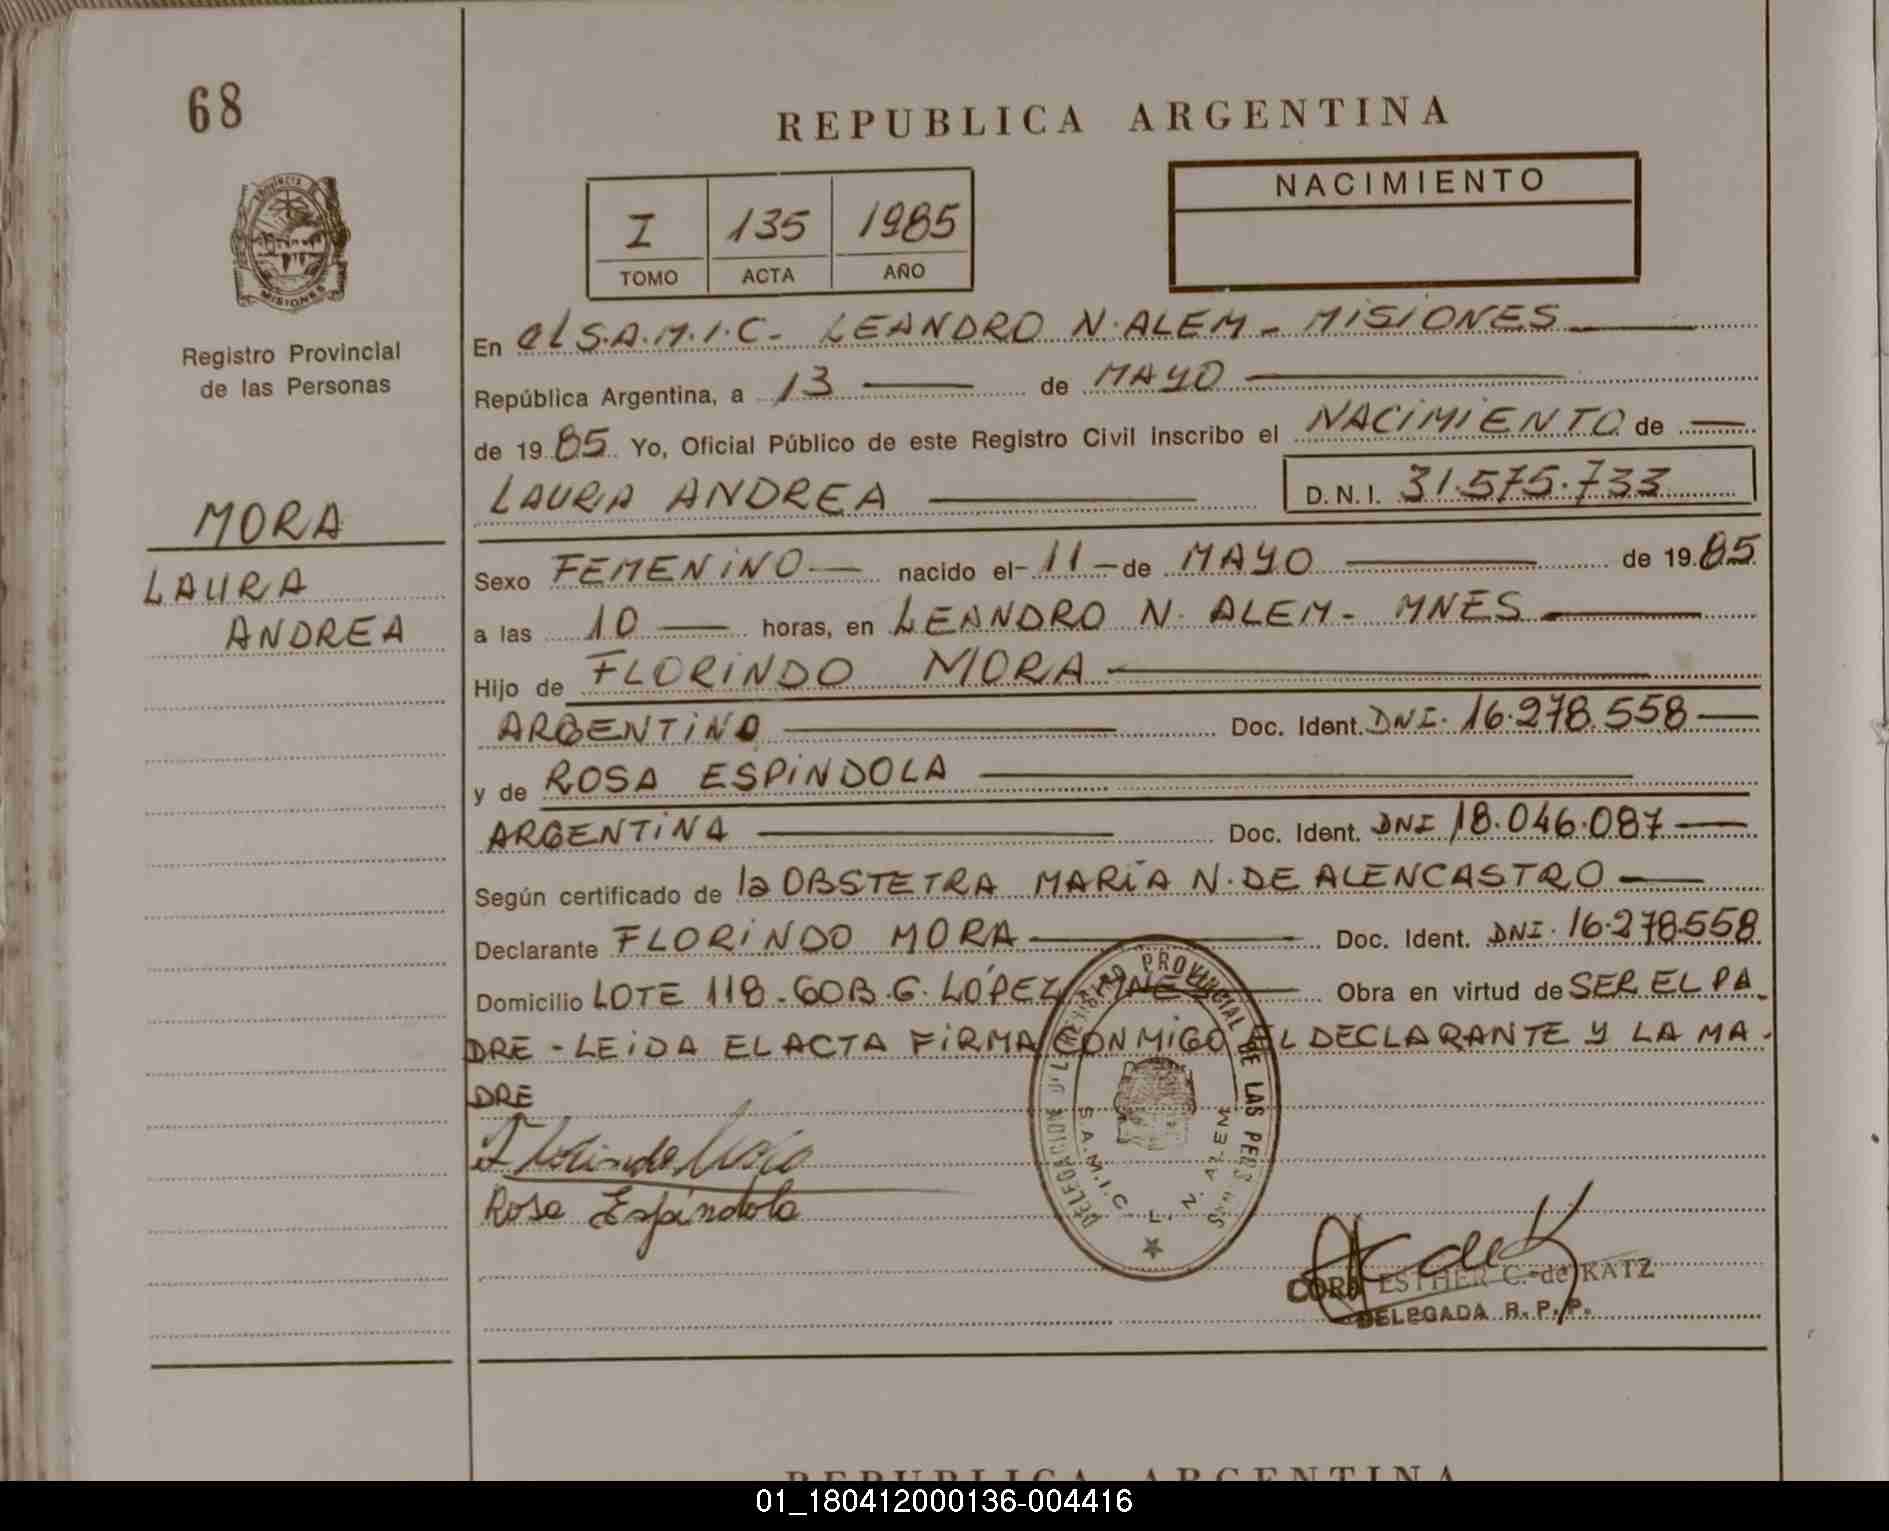 68
REPUBLICA ARGENTINA
I 135 1985
TOMO ACTA AÑO
NACIMIENTO
MISIONES
Registro Provincial
de las Personas
MORA
LAURA
ANDREA
En el S.A.M.I.C- LEANDRO N. ALEM - MISIONES
República Argentina, a 13 de MAYO
de 1985 Yo, Oficial Público de este Registro Civil inscribo el NACIMIENTO de
LAURA ANDREA D.N.I. 31.575.733
Sexo FEMENINO nacido el 11 de MAYO de 1985
a las 10 horas, en LEANDRO N. ALEM - MNES
Hijo de FLORINDO MORA
ARGENTINO Doc. Ident. DNI. 16.278.558
y de ROSA ESPINDOLA
ARGENTINA Doc. Ident. DNI 18.046.087
Según certificado de la OBSTETRA MARÍA N. DE ALENCASTRO
Declarante FLORINDO MORA Doc. Ident. DNI. 16.278.558
Domicilio LOTE 118 - GOB. G. LÓPEZ MNES Obra en virtud de SER EL PA-
DRE - LEIDA EL ACTA FIRMA CONMIGO EL DECLARANTE Y LA MA-
DRE
Florindo Mora
Rosa Espíndola
PROVINCIAL DE LAS
S.A.M.I.C. L. N. ALEM
CORA ESTHER C. de KATZ
DELEGADA R. P. P.
REPUBLICA ARGENTINA
01_180412000136-004416